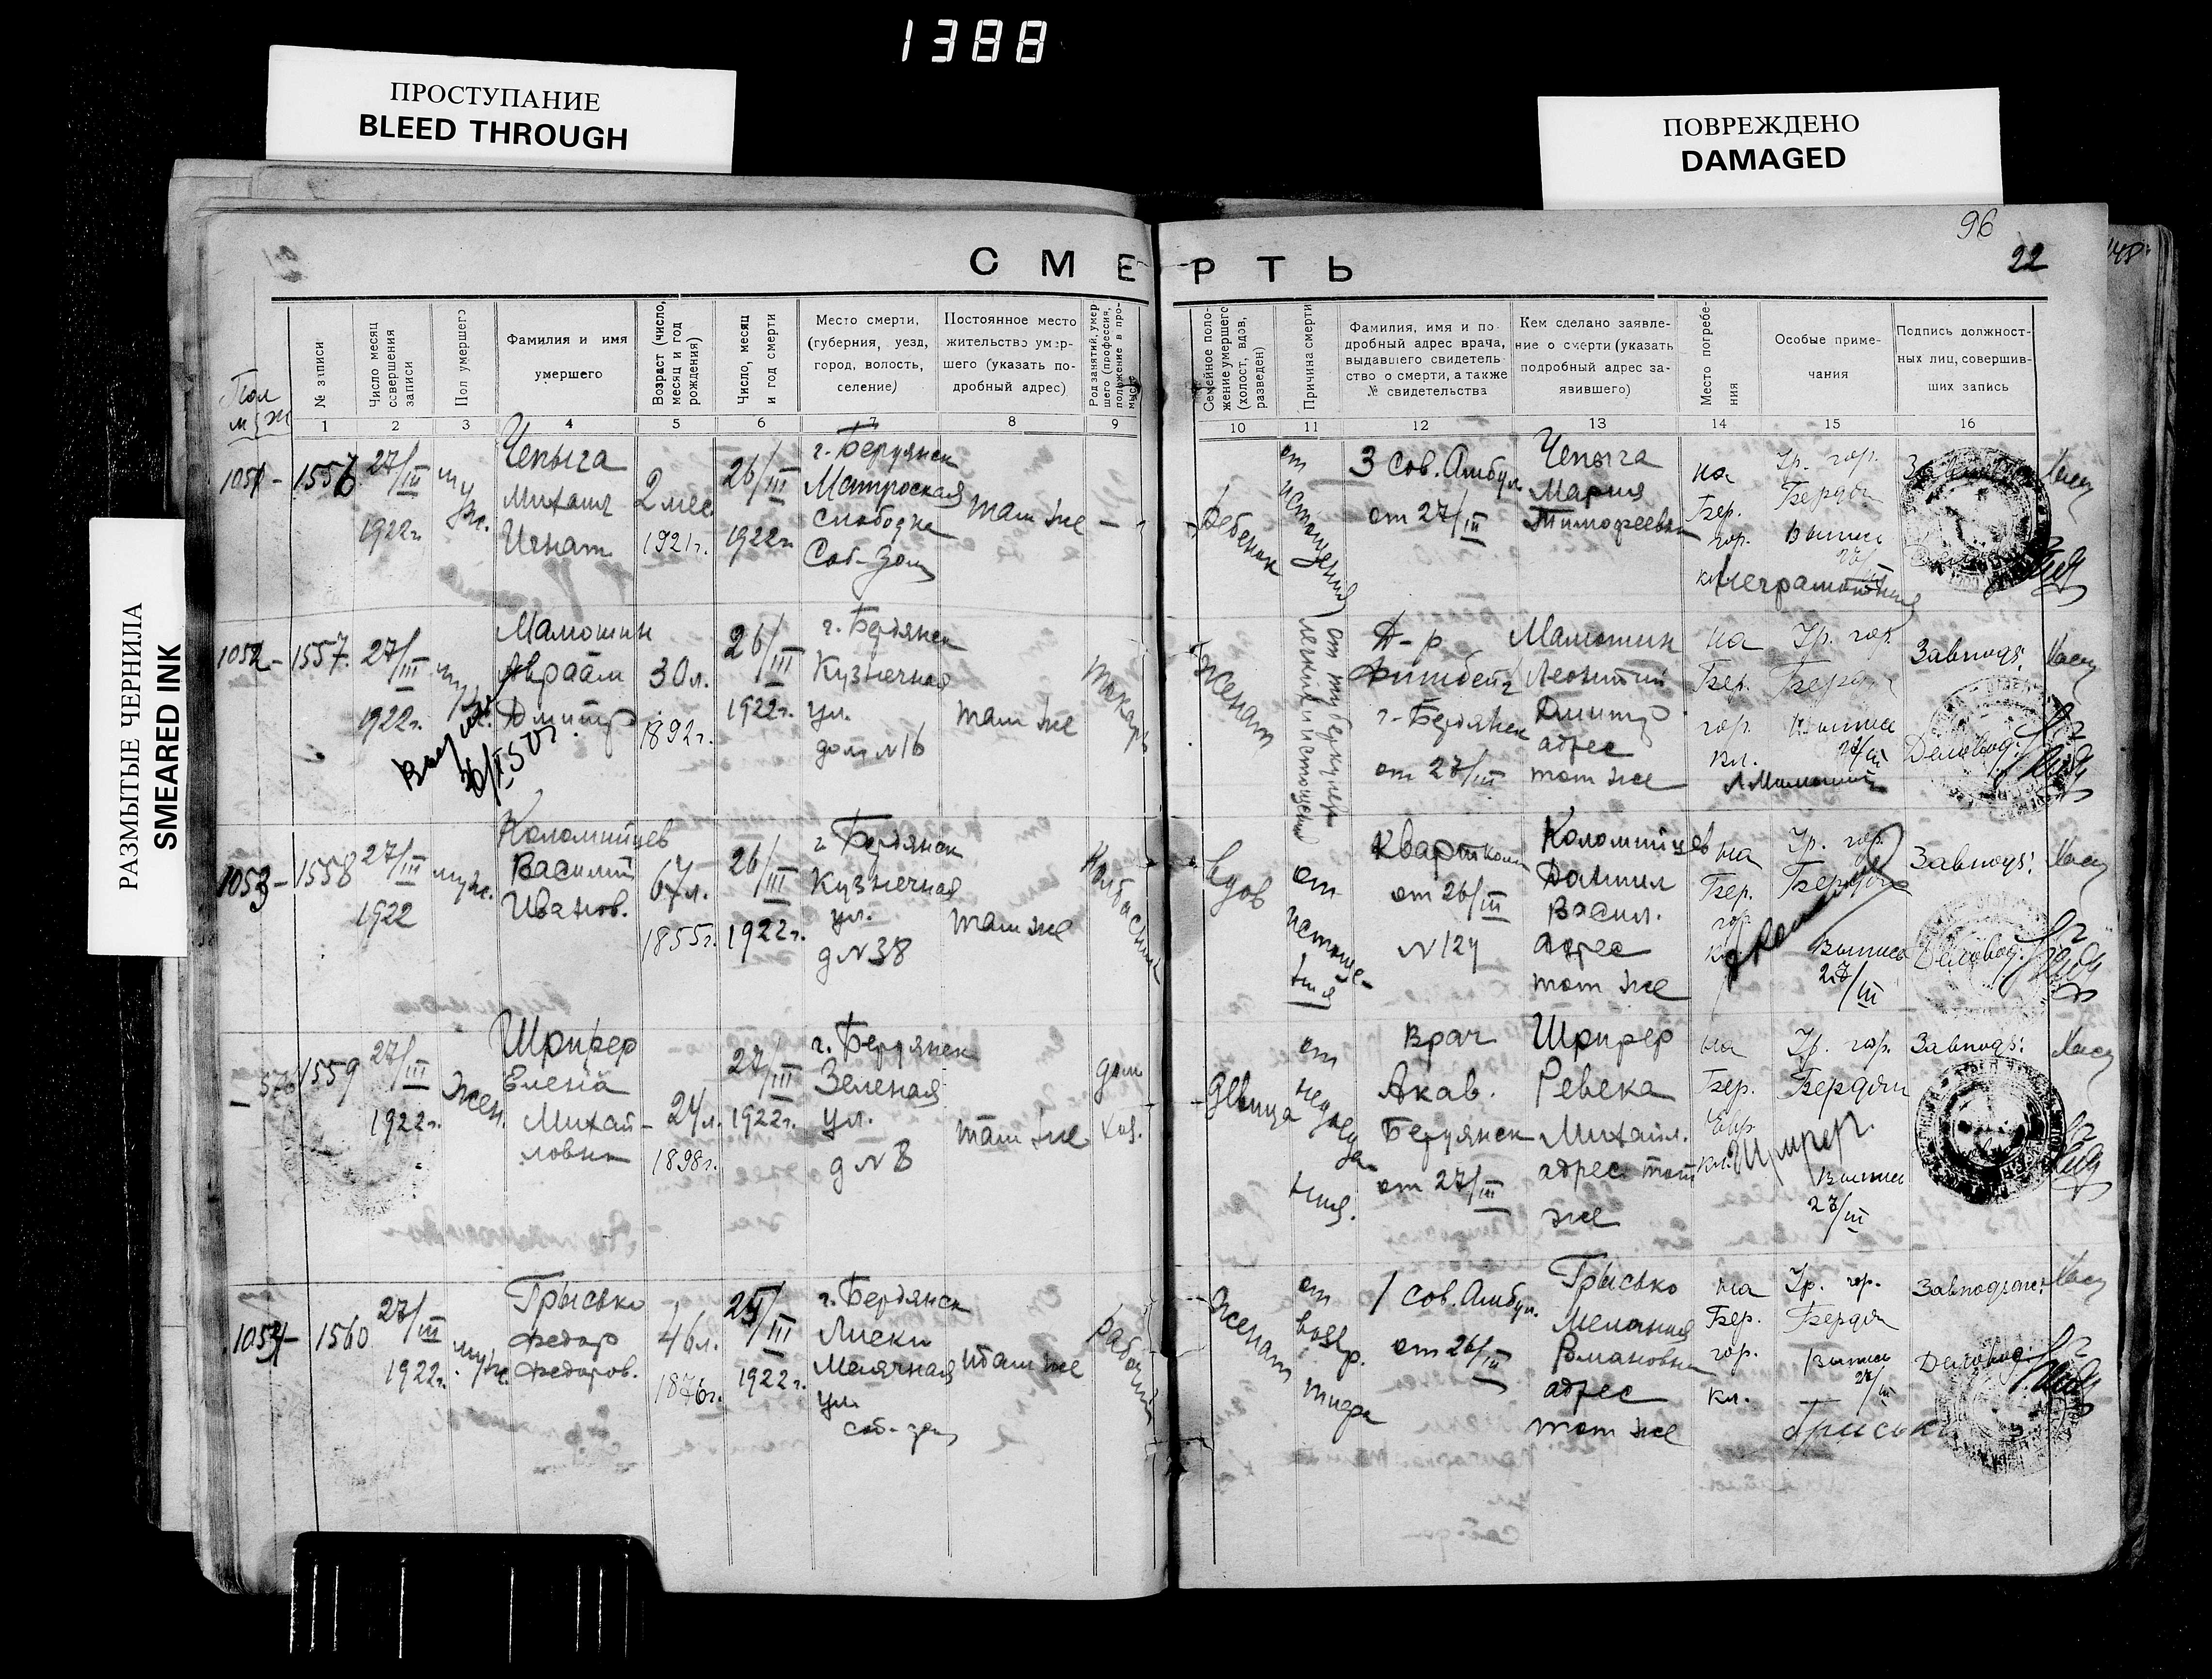 1388
ПРОСТУПАНИЕ
BLEED THROUGH
ПОВРЕЖДЕНО
DAMAGED
РАЗМЫТЫЕ ЧЕРНИЛА
SMEARED INK
96
22
СМЕРТЬ
Пол
м ж
№ записи
Число месяц совершения записи
Пол умершего
Фамилия и имя умершего
Возраст (число, месяц и год рождения)
Число, месяц и год смерти
Место смерти, (губерния, уезд, город, волость, селение)
Постоянное место жительство умершего (указать подробный адрес)
Род занятий, умершего (профессия, положение в промысле
Семейное положение умершего (холост, вдов, разведен)
Причина смерти
Фамилия, имя и подробный адрес врача, выдавшего свидетельство о смерти, а также № свидетельства
Кем сделано заявление о смерти (указать подробный адрес заявившего)
Место погребения
Особые примечания
Подпись должностных лиц, совершивших запись
1 2 3 4 5 6 7 8 9 10 11 12 13 14 15 16
1051 - 1556
27/III 1922г.
муж.
Чепыга
Михаил
Игнат
2 мес
1921г.
26/III 1922г.
г. Бердянск
Матроская
слободка
Соб-дом
там же
-
Ребенок
от истощения
3 Сов. Амбул.
от 27/III
Чепыга
Мария
Тимофеевна
на
Бер.
гор.
кл.
Гр. гор.
Бердян
Выписи
27/III
неграмотная
1052 - 1557.
27/III 1922г.
муж.
Мамошин
Авраам
Дмитр
30л.
1892г.
26/III 1922г.
г. Бердянск
Кузнечная
ул.
дом № 16
там же
токарь
женат
от туберкулеза
легких и истощения
Д-р
г. Бердянск
от 27/III
Мамошин
Леонтий
Дмитр
адрес
тот же
на
Бер.
гор.
кл.
Гр. гор.
27/III
Завподз:
Деловод:
1053 - 1558
27/III 1922
муж.
Коломийцев
Василий
Иванов.
67л.
1855г.
26/III 1922г.
г. Бердянск
Кузнечная
ул.
д № 38
там же
Колбасник
вдов
от
истоще-
ния
Квартком
от 26/III
№ 124
Коломийцев
Даниил
Васил.
адрес
тот же
на
Бер.
гор.
кл.
Гр. гор.
Выписи
27/III
Завподз:
Деловод:
570 1559
27/III 1922г.
жен.
Шрифер
Елена
Михай-
ловна
24л.
1898г.
27/III 1922г.
г. Бердянск
Зеленая
ул.
д № 8
там же
дом
хоз.
девица
от
недоеда-
ния.
Врач
Акав.
Бердянск
от 27/III
Шрифер
Ревека
Михайл.
адрес тот
же
на
Бер.
Евр.
кл.
Гр. гор.
Выписи
27/III
Завподз:
1054 - 1560
27/III 1922г.
муж.
Грысько
Федор
Федоров.
46л.
1876г.
25/III 1922г.
г. Бердянск
Лиски
ул.
соб-дом
там же
рабочий
женат
от
возвр.
тифа
1 Сов. Амбул.
от 26/III
Грысько
Мелания
Романовна
адрес
тот же
на
Бер.
гор.
кл.
Гр. гор.
Выписи
27/III
Грисько
Деловод: